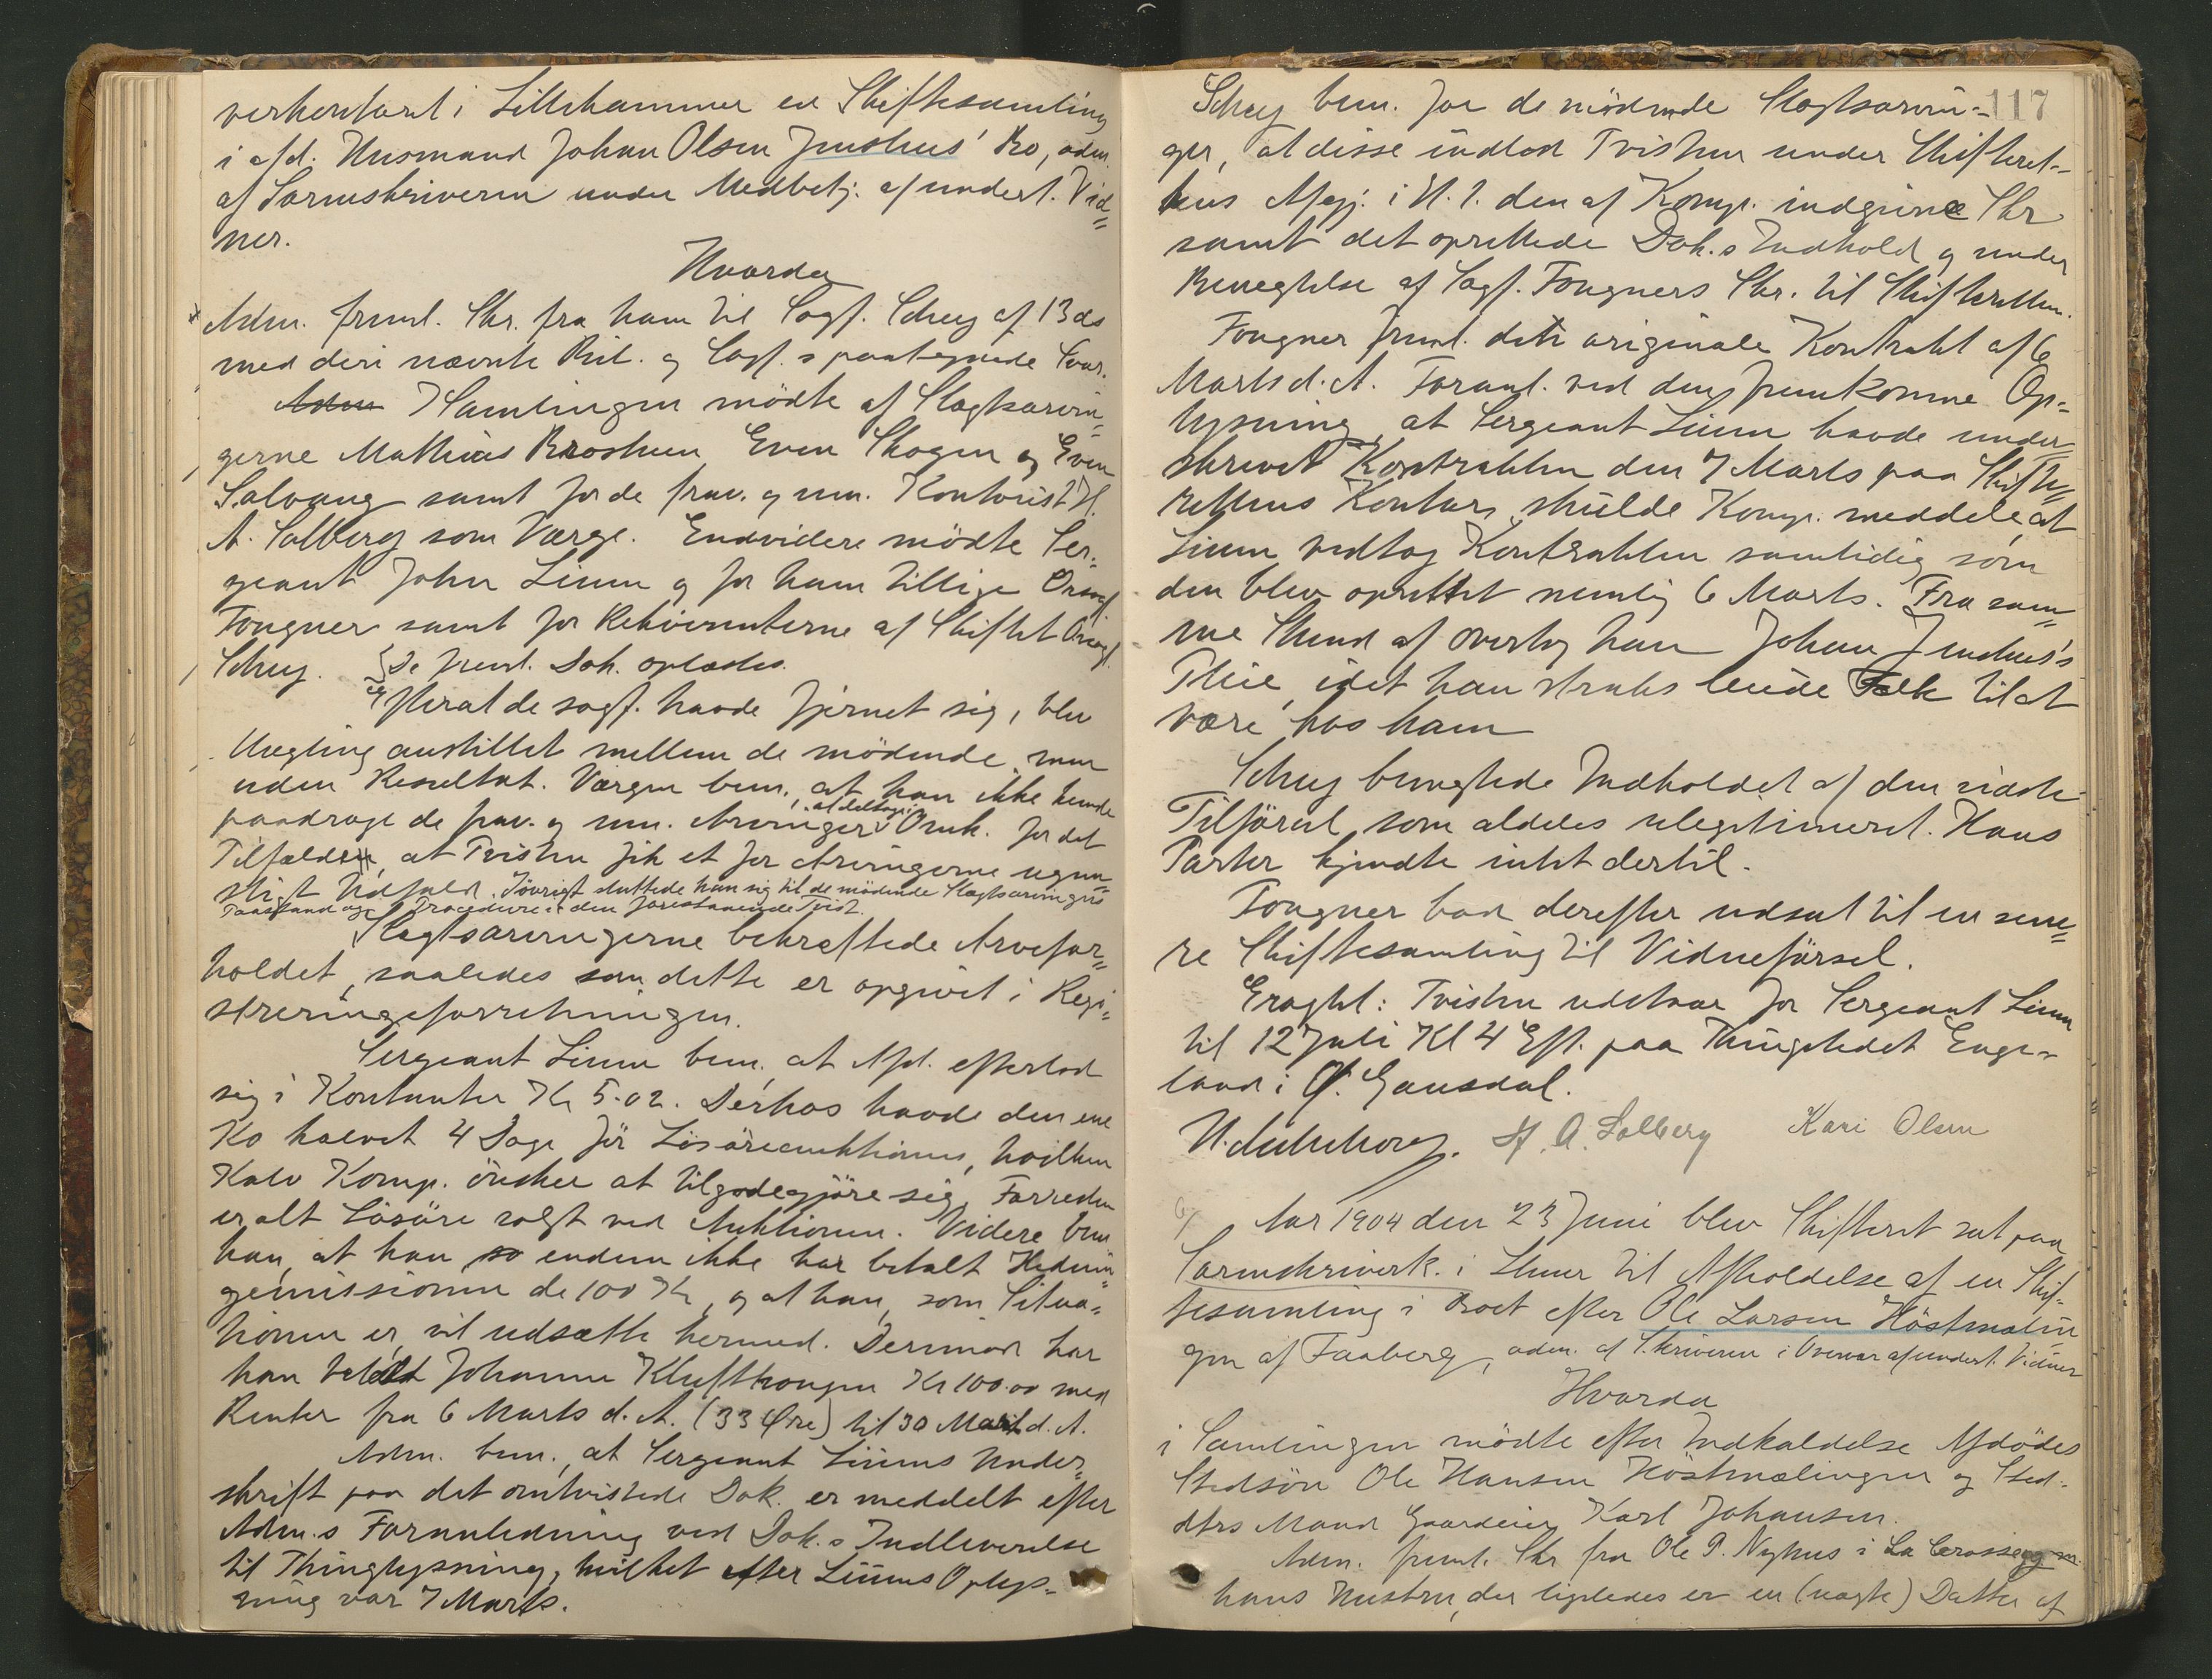 verkontoret i Lillehammer en Skiftesamling
i afd. Husmand Johan Olsen Jenshus' Bo, adm.
af Sorenskriveren under Medbetj. af undert. Vid=
ner.
Hvorda
Adm. freml. Skr. fra ham til Sagf. Schey af 13 ds
med deri nævnte Bil. og Sagf.s paategnede Svar.
Adm I Samlingen mödte af Slagtsarvin=
gerne Mathias Broshuen, Even Skogen og Even
Solvang samt for de frav. og um. Kontorist H.
A. Solberg som Værge. Endvidere mödte Ser=
geant John Linm og for ham tillige Ovrsagf.
Fougner samt for Rekvirenterne af Skiftet Ovrsagf.
Schey. De freml. Dok. oplæstes.
Efterat de sagf. havde fjernet sig, blev
Mægling anstillet mellem de mödende, men
uden Resultat. Værgen bem., at han ikke kunde
paadrage de frav. og um. Arvinger at deltage i Omk. for det
Tilfælde, at Tvisten fik et for Arvingerne ugun=
stigt Udfald. Iövrigt sluttede han sig til de mödende Slagtsarvingers
Paastand og Procedure i den forestaaende Tvist.
Slagtsarvingerne bekræftede Arvefor=
holdet, saaledes som dette er opgivet i Regi=
streringsforretningen.
Sergeant Linm bem. at Afd. efterlod
sig i Kontanter Kr 5.02. Derhos havde den ene
Ko kalvet 4 Dage för Lösöreauktionen, hvilken
Kalv Komp. önsker at tilgodegjöre sig. Forresten
er alt Lösöre solgt ved Auktionen. Videre bem.
han, at han so endnu ikke har betalt Hednin=
gemissionen de 100 Kr, og at han, som Situa=
tionen er, vil udsætte hermed. Derimod har
han betalt Johanne Klufthaugen Kr 100.00 med
Renter fra 6 Marts d. A. (33 Øre) til 30 Marts d. A.
Adm. bem., at Sergeant Linms Under=
skrift paa det omtvistede Dok. er meddelt efter
Adm.s Foranledning ved Dok.s Indleverelse
til Thinglysning, hvilket efter Linms Oplys=
ning var 7 Marts.
117
Schey bem. for de mödende Slagtsarvin=
ger, at disse indlod Tvisten under Skifteret=
tens Afgj. i H. t. den af Komp. indgivne Skr
samt det oprettede Dok.s Indhold og under
Benegtelse af Sagf. Fougners Skr. til Skifteretten.
Fougner freml. den originale Kontrakt af 6
Marts d. A. Foranl. ved den fremkomne Op=
lysning, at Sergeant Linm havde under=
skrevet Kontrakten den 7 Marts paa Skifte=
rettens Kontor, skulde Komp. meddele, at
Linm vedtog Kontrakten samtidig som
den blev oprettet nemlig 6 Marts. Fra sam=
me Stund af overtog han Johan Jenshus's
Pleie, idet han straks leiede Folk til at
være hos ham
Schey benegtede Indholdet af den sidste
Tilförsel, som aldeles ulegitimeret. Hans
Parter kjendte intet dertil.
Fougner bad derefter udsat til en sene=
re Skiftesamling til Vidneförsel.
Eragtet: Tvisten udstaar for Sergeant Linm
til 12 Juli Kl 4 Eft. paa Thingstedet Enge=
land i Ø. Gausdal.
H. A. Solberg Kari Olsen
6/ Aar 1904 den 23 Juni blev Skifteret sat paa
Sorenskriverk. i Lhmer til Afholdelse af en Skif=
tesamling i Boet efter Ole Larsen Höstmælin
gen af Faaberg, adm. af S.skriveren i Overvær af undert. Vidner
Hvorda
i Samlingen mödte efter Indkaldelse Afdödes
Stedsön Ole Hansen Höstmælingen og Sted=
dtrs Mand Gaardeier Karl Johansen.
Adm. freml. Skr fra Ole P. Nyhus i La Crosse
hans Hustru, der ligeledes er en (uægte) Datter af